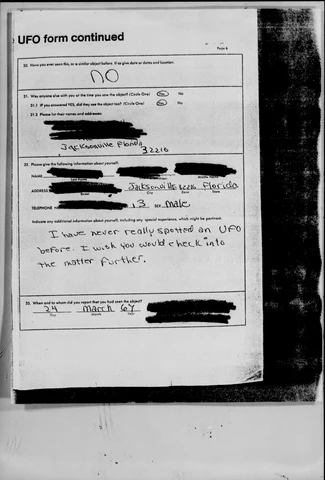 UFO form continued
Page 6
20. Have you ever seen this, or a similar object before. If so give date or dates and location.
NO
21. Was anyone else with you at the time you saw the object? (Circle One) Yes No
21.1 If you answered YES, did they see the object too? (Circle One) Yes No
21.2 Please list their names and addresses:
Jacksonville Florida
32216
22. Please give the following information about yourself:
NAME
Last Name First Name Middle Name
ADDRESS Jacksonville Florida
Street City Zone State
TELEPHONE 13 SEX Male
Indicate any additional information about yourself, including any special experience, which might be pertinent.
I have never really spotted an UFO
before. I wish you would check into
the matter further.
23. When and to whom did you report that you had seen the object?
24 March 67
Day Month Year